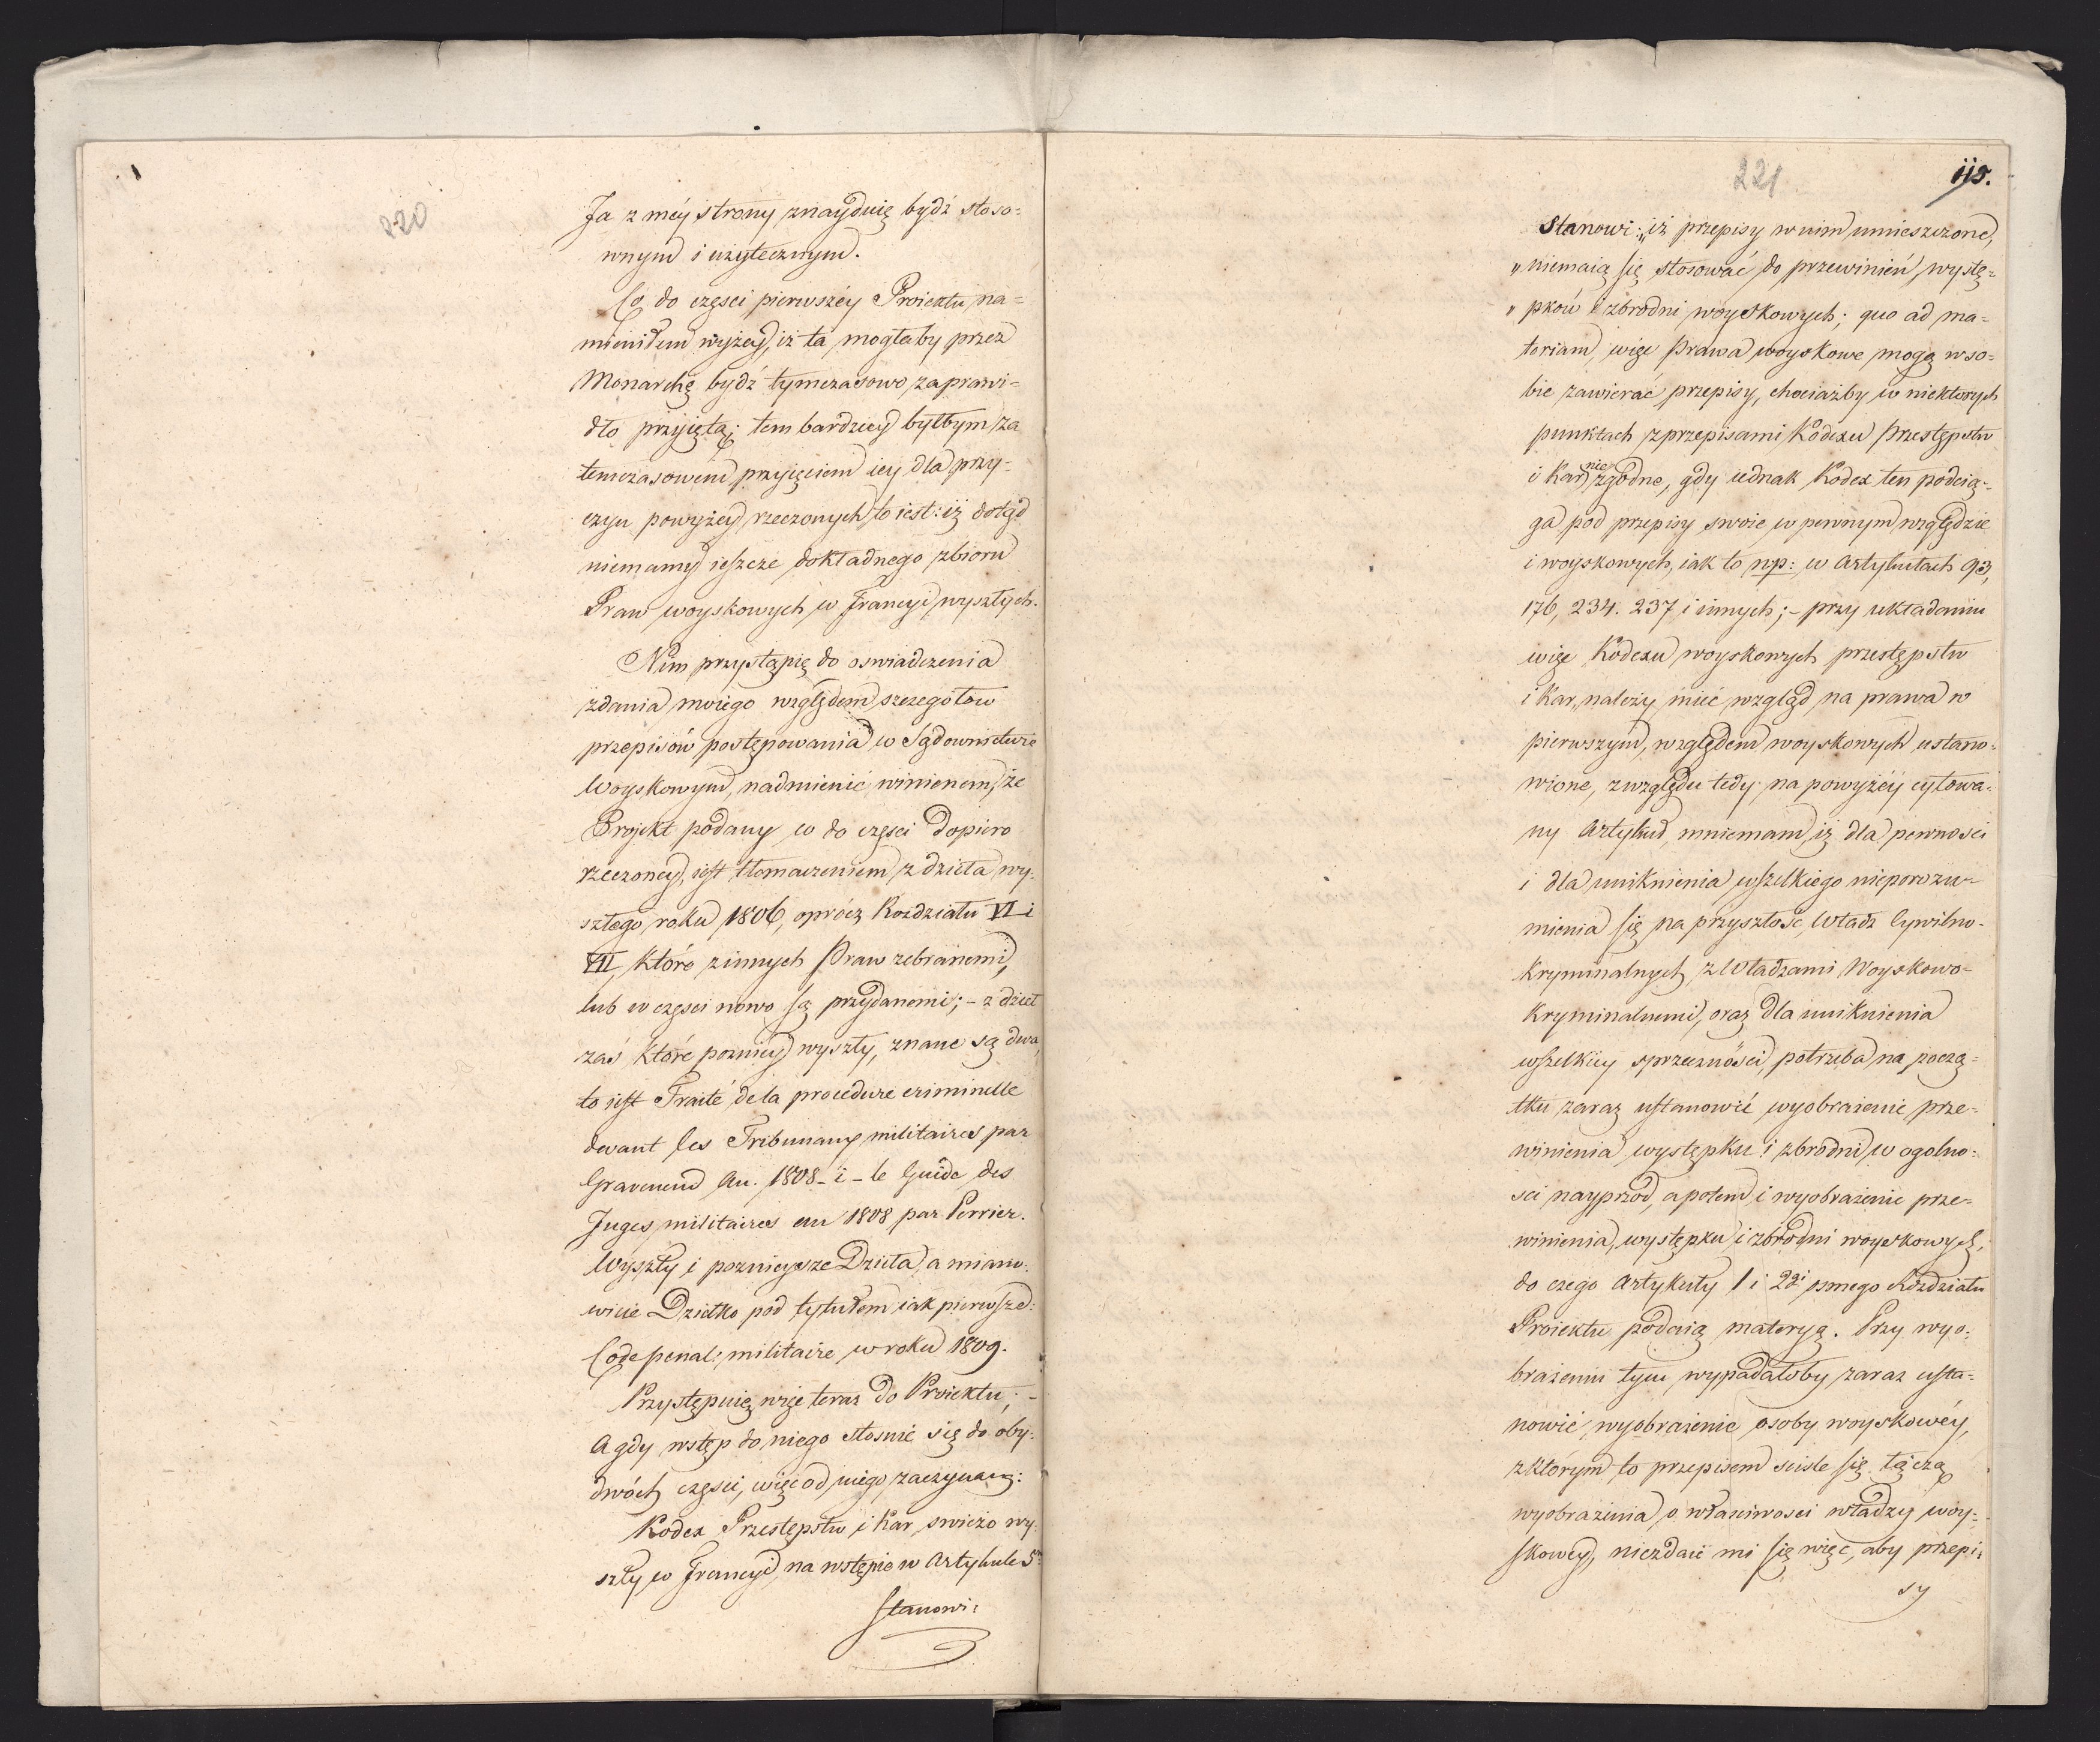 220
Ja z méy strony znayduię bydź stoso=
wnym i użytecznym.
Co do części pierwszéy Proiektu na=
mieniłem wyżey, iż ta mogłaby przez
Monarchę bydź tymczasowo zaprawi=
dło przyięta; tem bardziey byłbym za
temczasowem przyięciem iey dla przy=
czyn powyżey rzeczonych to iest: iż dotąd
niemamy ieszcze dokładnego zbioru
Praw woyskowych w Francyi wyszłych.
Nim przystąpię do oswiadczenia
zdania moiego względem szczegołow
przepisów postępowania w Sądownictwie
Woyskowym, nadmienić winienem, że
Projekt podany co do części dopiero
rzeczoney, iest tłomaczeniem z dzieła wy=
szłego roku 1806, oprócz Rozdziału VI i
VII, które z innych Praw zebranemi,
lub w części nowo są przydanemi; - z dzieł
zaś które pozniey wyszły, znane są dwa,
to iest Traité de la procedure criminelle
devant les Tribunaux militaires par
Gravenend An. 1808 - i - le Guide des
Juges militaires an 1808 par Perrier.
Wyszły i poznieysze Dzieła, a miano=
wicie Dziełko pod tytułem iak pierwsze:
Code penal: militaire w roku 1809.
Przystępuię więc teraz do Proiektu; -
A gdy wstęp do niego stosuie się do oby=
dwóch części, więc od niego zaczynam:
Kodex Przestępstw i Kar swieżo wy=
szły w Francyi, na wstępie w Artykule 5m
Stanowi:
221
115.
Stanowi: „iż przepisy w nim umieszczone,
„niemaią się stosować do przewinień wystę=
„pków i zbrodni woyskowych; quo ad ma=
teriam, więc Prawa woyskowe mogą w so=
bie zawierać przepisy, chociażby w niektorych
punktach z przepisami Kodexu Przestępstw
i Kar nie zgodne, gdy iednak Kodex ten podcią=
ga pod przepisy swoie w pewnym względzie
i woyskowych, iak to np: w Artykułach 93,
176, 234. 237 i innych; - przy układaniu
więc Kodexu woyskowych przestępstw
i Kar, należy mieć wzgląd na prawa w
pierwszym, względem woyskowych ustano=
wione, z względu tedy na powyżéy cytowa=
ny Artykuł, mniemam, iż dla pewności
i dla uniknienia wszelkiego nieporozu=
mienia się na przyszłość, Władz Cywilno=
Kryminalnych z Władzami Woyskowo=
Kryminalnemi, oraz dla uniknienia
wszelkiey sprzeczności, potrzeba na począ=
tku zaraz ustanowić wyobrażenie prze=
winienia występku i zbrodni w ogolno=
ści nayprzod, a potem i wyobrażenie prze=
winienia, występku i zbrodni woyskowych,
do czego Artykuły 1 i 2gi psmego Rozdziału
Proiektu podaią materyą. Przy wyo=
brażeniu tym wypadałoby zaraz usta=
nowić wyobrażenie osoby woyskowéy,
z którym to przepisem ściśle się łączą
wyobrażenia o właściwości władzy woy=
skowey, niezdaie mi się więc, aby przepi=
sy